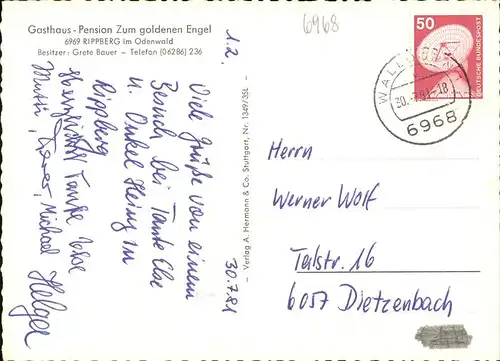 Gasthaus - Pension Zum goldenen Engel
6969 RIPPBERG im Odenwald
Besitzer: Grete Bauer – Telefon (06286) 236
1.2.
6968
50
DEUTSCHE BUNDESPOST
30. 7. 81 - 18
6968
Viele Grüße von einem
Besuch bei Tante Else
u. Onkel Heinz in
Rippberg
30.7.81
Herzlichst Tante Else
Mutti, Michael Helga
– Verlag A. Hermann & Co. Stuttgart, Nr. 1349/35L –
Herrn
Werner Wolf
Talstr. 16
6057 Dietzenbach